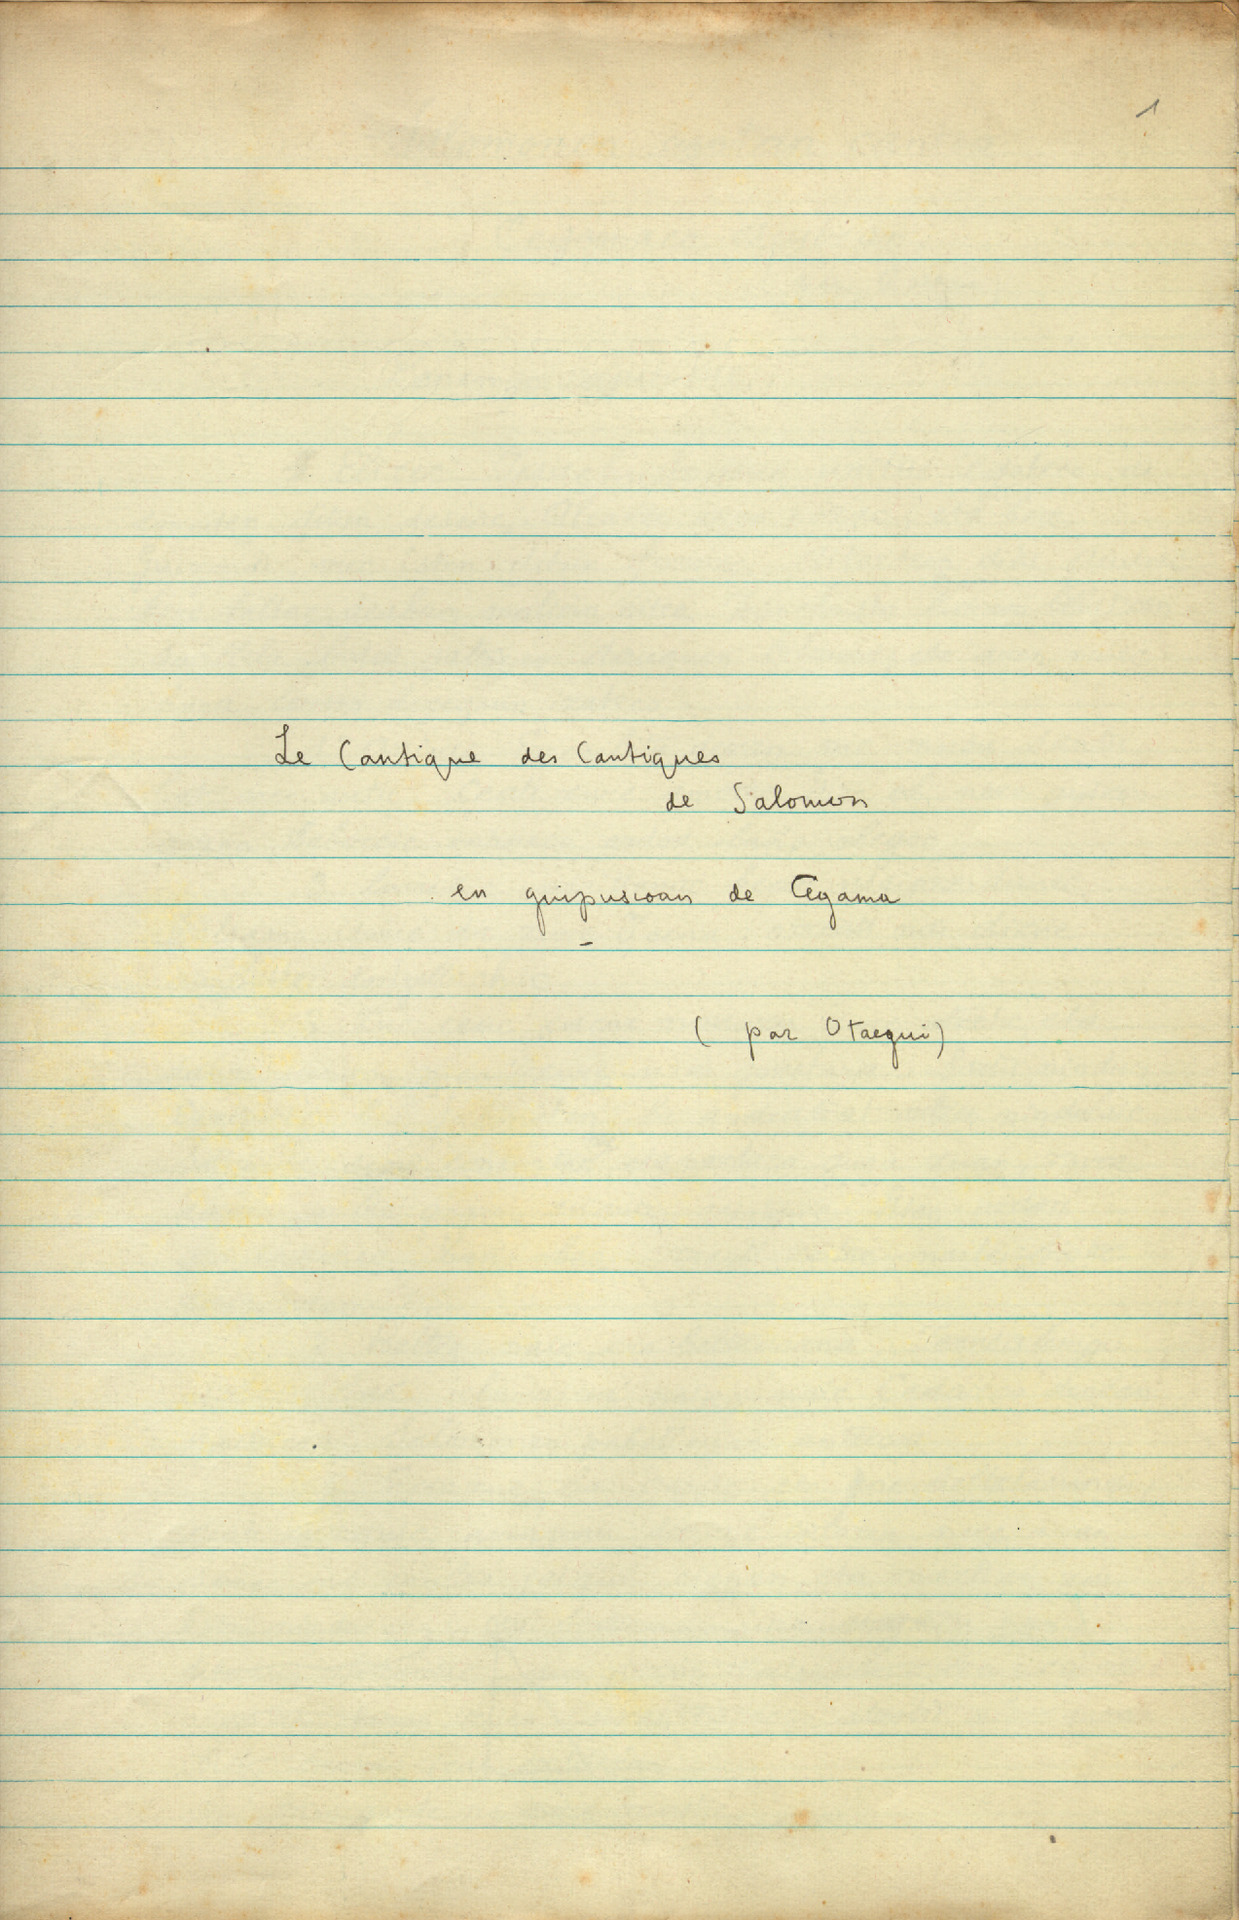 1
Le Cantique des Cantiques
de Salomon
en guipuscoan de Cegama
(par Otaegui)